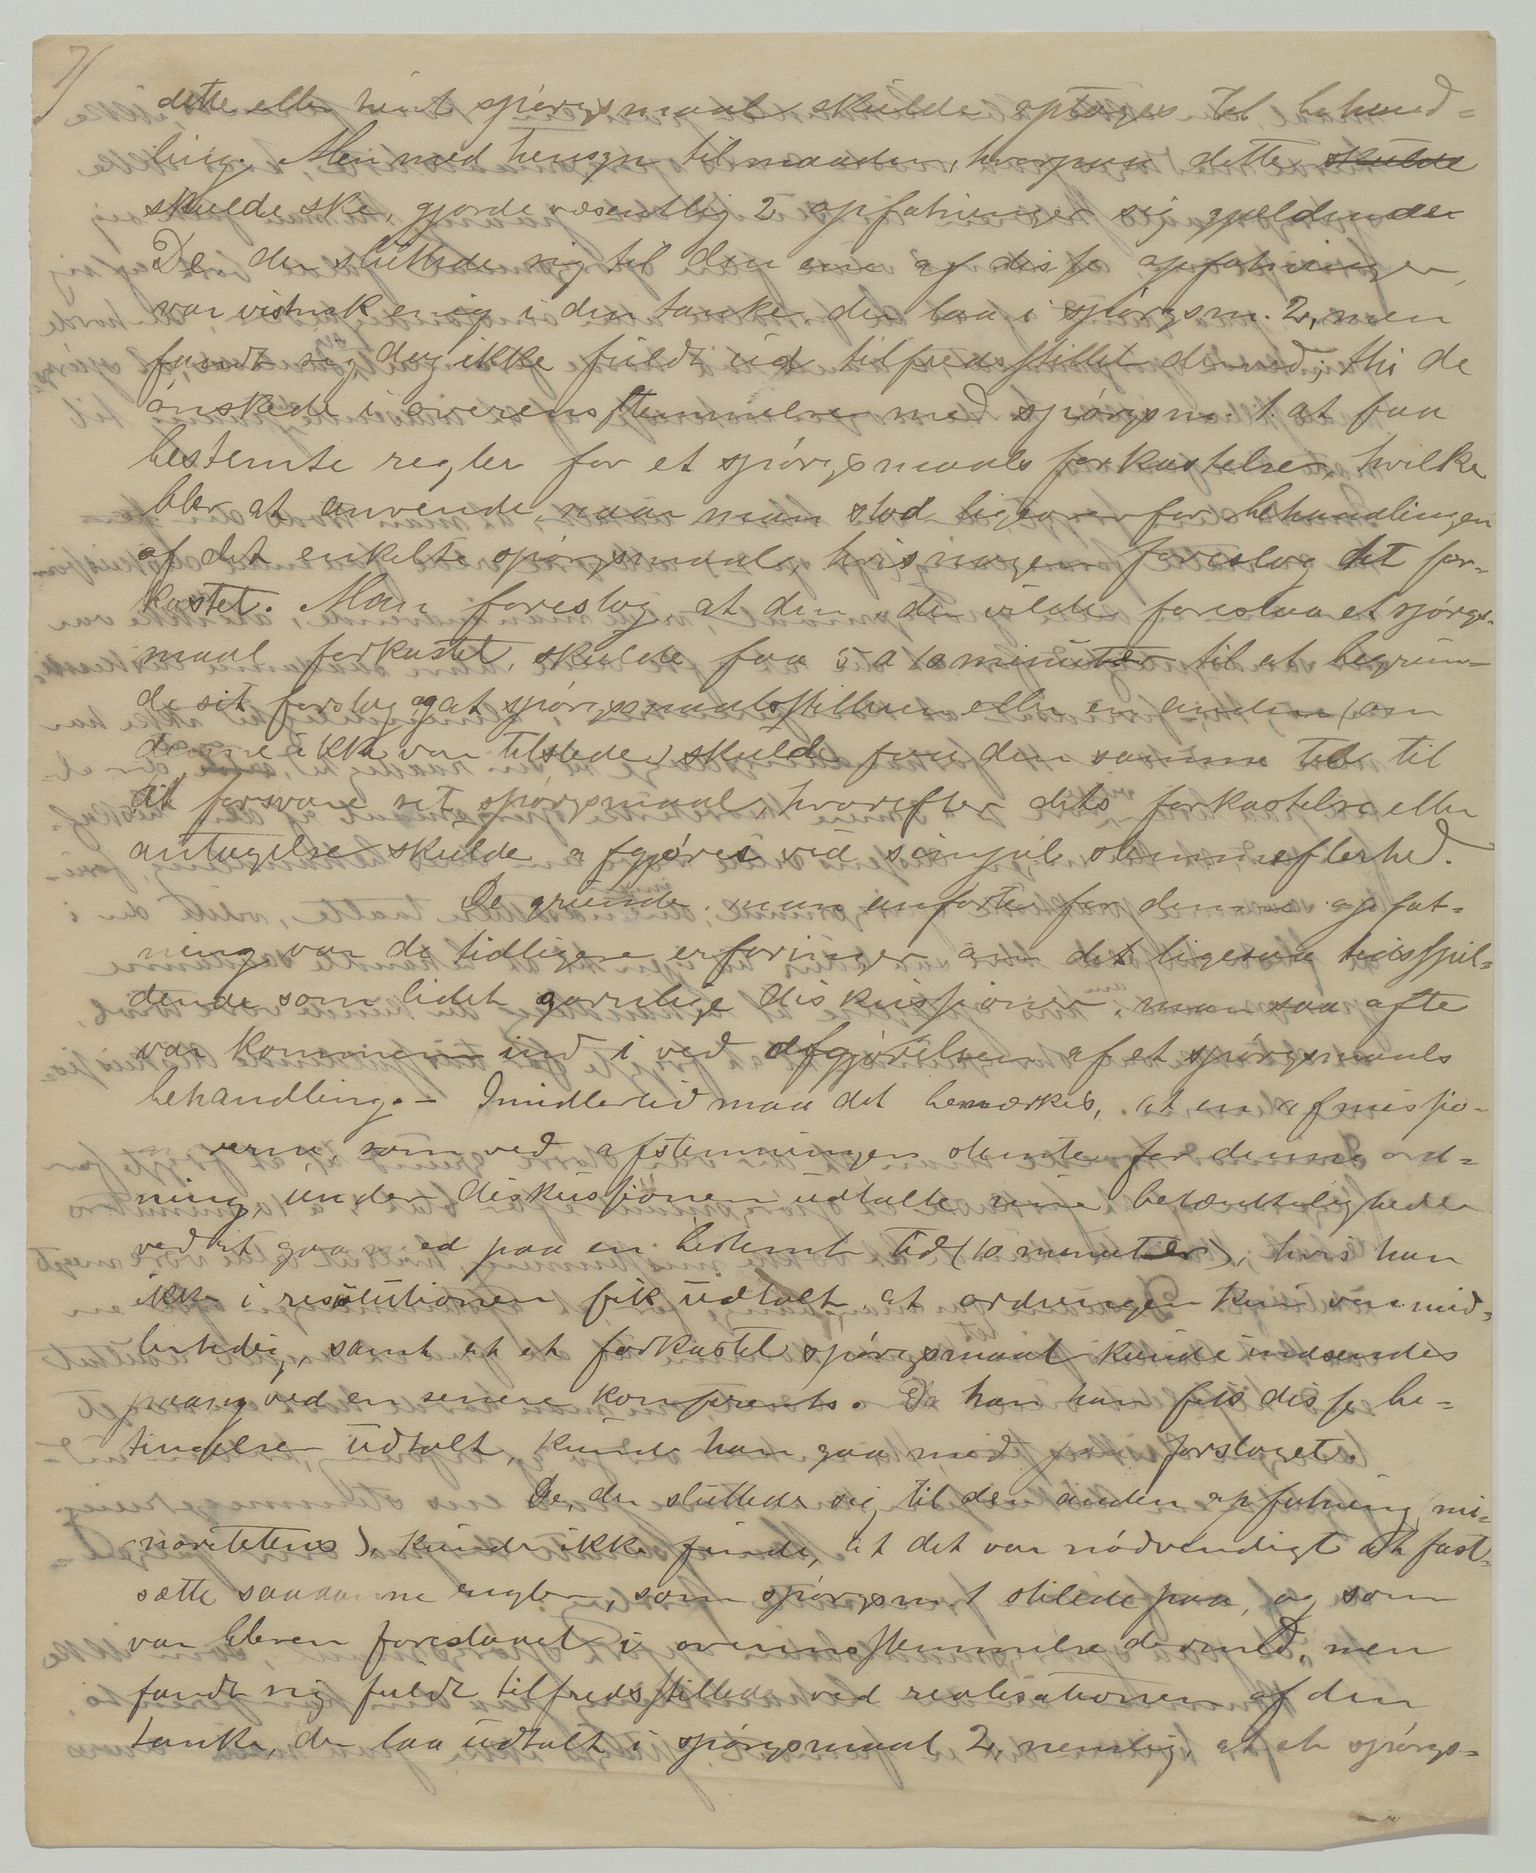 7/
dette eller hint spörgsmaal skulde optages til behand-
ling. Men med hensyn til maaden, hvorpaa dette skulde
skulde ske, gjorde væsentlig 2 opfatninger sig gjeldende.
De der sluttede sig til den ene af disse opfatninger,
var vistnok enig i den tanke der laa i spörgsm. 2, men
fandt sig dog ikke fuldt ud tilfredsstillet dermed; thi de
önskede i overensstemmelse med spörgsm. 1. at faa
bestemte regler for et spörgsmaals forkastelse, hvilke
blev at anvende, naar man stod ligeoverfor behandlingen
af det enkelte spörgsmaal, hvis nogen foreslog det for-
kastet. Man foreslog, at den, der vilde foreslaa et spörgs-
maal forkastet, skulde faa 5 a 10 minutter til at begrun-
de sit forslag og at spörgsmaalsstilleren eller en anden (om
denne ikke var tilstede) skulde faa den samme tid til
at forsvare sit spörgsmaal, hvorefter dets forkastelse eller
antagelse skulde afgjöres ved simpel stemmeflerhed.
De grunde man anförte for denne opfat-
ning var de tidligere erfaringer om det ligesaa tidsspil-
dende som lidet gavnlige diskussjoner, man saa ofte
var kommen ind i ved afgjörelsen af et spörgsmaals
behandling. - Imidlertid maa det bemærkes, at en af missjo-
nærerne, som ved afstemningen stemte for denne ord-
ning under diskussjonen udtalte sine betænkeligheder
ved at gaa ed paa en bestemt tid (10 minutter), hvis han
ikke i resolutionen fik udtalt, at ordningen kun var mid-
lertidig, samt at et forkastet spörgsmaal kunde indsendes
paany ved en senere konferents. Da han han fik disse be-
tingelser udtalt, kunde han gaa med paa forslaget.
De, der sluttede sig til den anden opfatning (mi-
noritetens), kunde ikke finde, at det var nödvendigt at fast-
sætte saadanne regler, som spörgsm 1 stilede paa, og som
var bleven foreslaaet i overensstemmelse dermed, men
fandt sig fuldt tilfredsstillede ved realisationen af den
tanke, der laa udtalt i spörgsmaal 2, nemlig, at et spörgs-